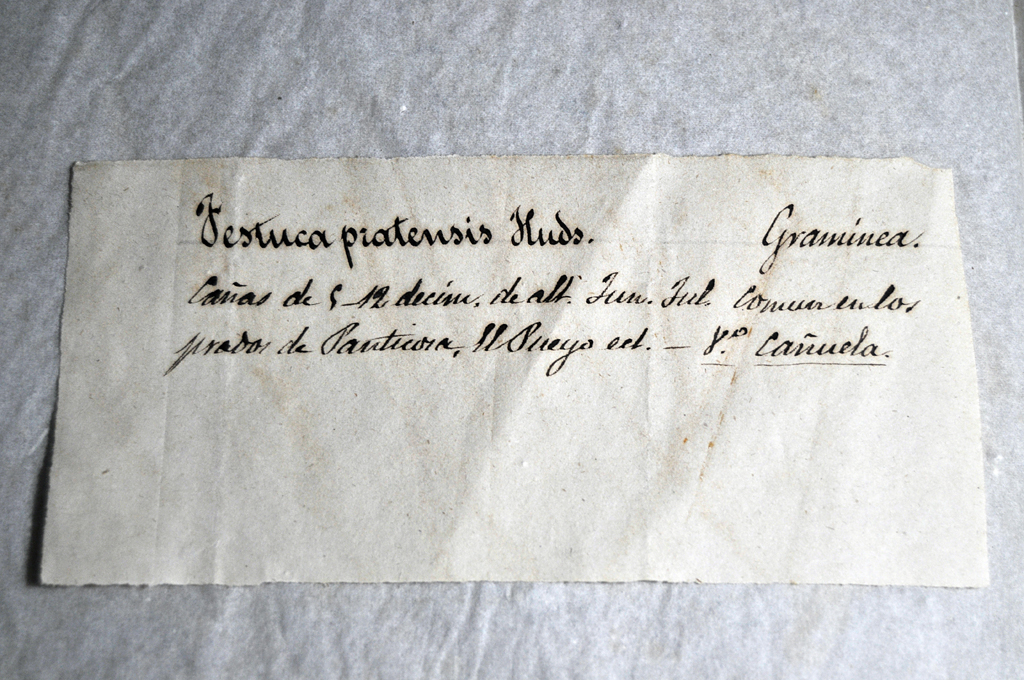 Festuca pratensis Huds. Graminea.
Cañas de 5-12 decim. de alt. Jun. Jul. Comun en los
prados de Panticosa, El Pueyo ect. — V.º Cañuela.